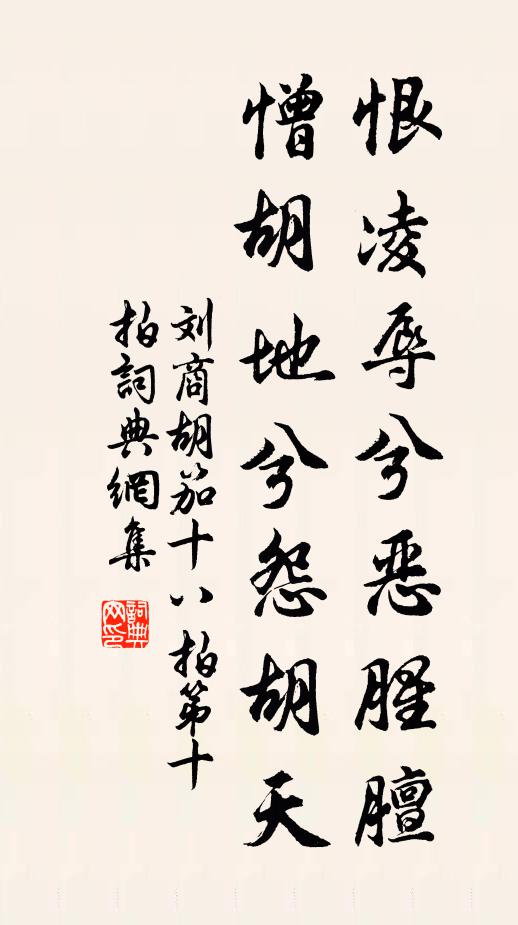 恨凌辱兮惡腥膻
憎胡地兮怨胡天
刘商胡笳十八拍第十
拍詞典網集
詞典网印